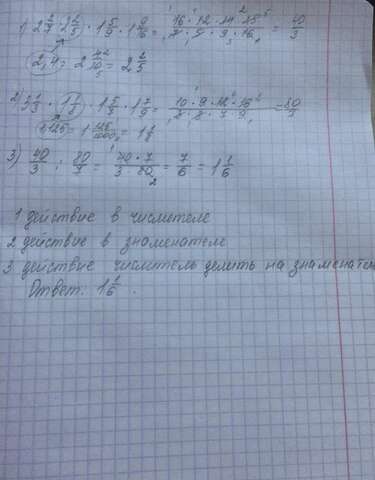 1) 2 2/7 · 2 2/5 · 1 5/9 · 1 9/16 = 16 · 12 · 14 · 25 / 7 · 5 · 9 · 16 = 40/3
2,4 = 2 4/10 = 2 2/5
2) 3 1/3 · 1 1/8 · 1 5/7 · 1 7/9 = 10 · 9 · 12 · 16 / 3 · 8 · 7 · 9 = 80/7
1,125 = 1 125/1000 = 1 1/8
3) 40/3 : 80/7 = 40 · 7 / 3 · 80 = 7/6 = 1 1/6
1 действие в числителе
2 действие в знаменателе
3 действие числитель делить на знаменател
Ответ: 1 1/6 .